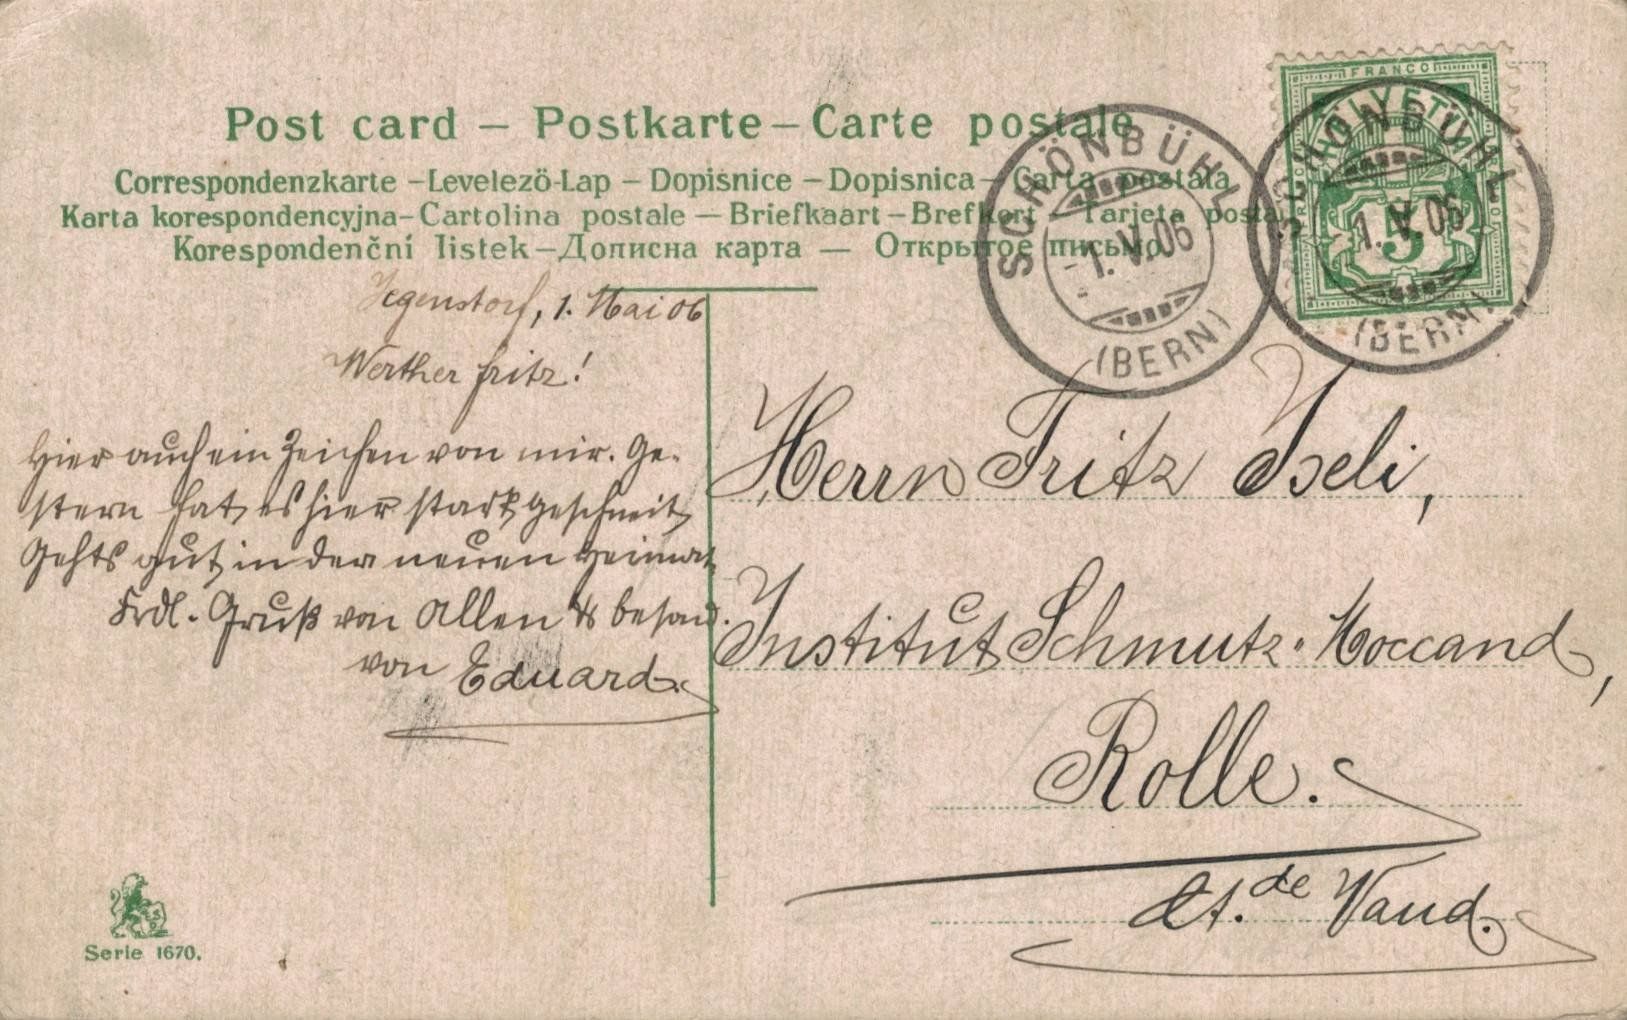 Post card – Postkarte – Carte postale
Correspondenzkarte – Levelezö-Lap – Dopisnice – Dopisnica – Carta postala
Karta korespondencyjna – Cartolina postale – Briefkaart – Brefkort – Tarjeta postal
Korespondenční listek – Дописна карта – Открытое письмо
FRANCO
HELVETIA
5
SCHÖNBÜHL
1.V.06
(BERN)
SCHÖNBÜHL
1.V.06
(BERN)
Jegenstorf, 1. Mai 06
Werther Fritz!
Hier auch ein Zeichen von mir. Ge-
stern hat es hier stark geschneit,
Gehts gut in der neuen Heimat
Frdl. Gruß von Allen & besond.
von Eduard.
Herrn Fritz Iseli,
Institut Schmutz-Moccand,
Rolle.
Ct. de Vaud.
Serie 1670.